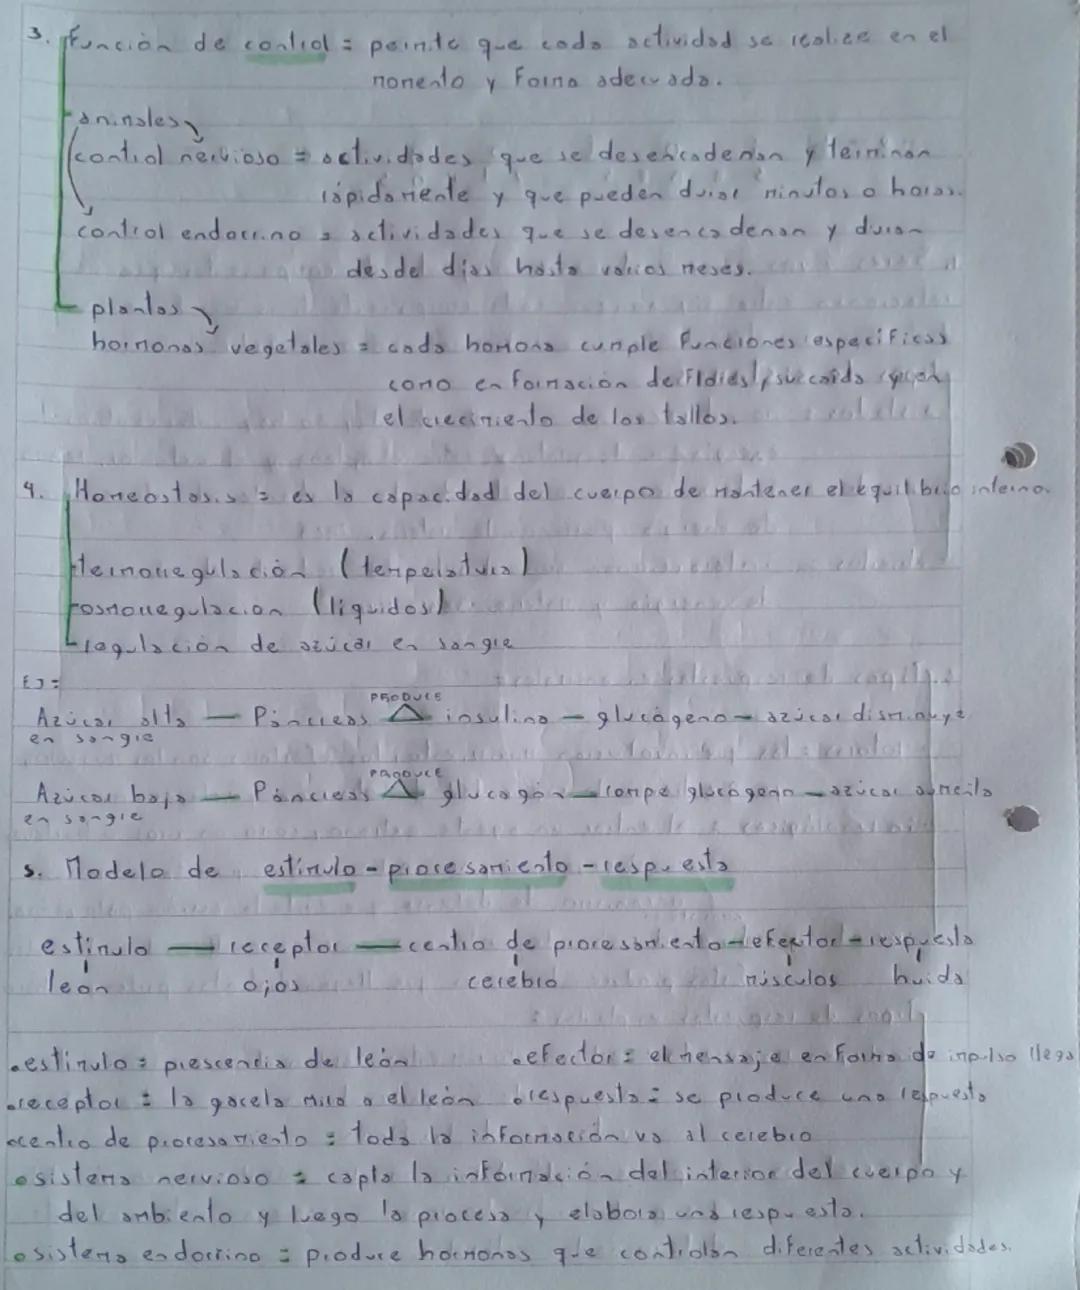 3. Función de control = permite que cada actividad se realice en el
momento y forma adecuada.
animales
control nervioso = actividades que se desencadenan y terminan
rápidamente y que pueden durar minutos o horas.
control endocrino = actividades que se desencadenan y duran
desdel días hasta varios meses.
plantas
hormonas vegetales = cada homona cumple funciones especificas
como en formación de flores, su caída y en
el crecimiento de los tallos.
4. Homeostasis = es la capacidad del cuerpo de mantener el equilibrio interno.
termorregulación (temperatura)
osmorregulacion (liquidos)
regulación de azúcar en sangre
EJ =
PRODUCE
Azúcar alta — Páncreas △ insulina — glucógeno — azúcar disminuye
en sangre
PRODUCE
Azúcar baja — Páncreas △ glucagón — rompe glucógeno — azúcar aumenta
en sangre
5. Modelo de estímulo - procesamiento - respuesta
estímulo — receptor — centro de procesamiento — efector — respuesta
león ojos cerebro músculos huida
• estímulo = prescencia de león • efector = el mensaje en forma de impulso llega
• receptor = la gacela mira a el león • respuesta = se produce una respuesta
• centro de procesamiento = toda la información va al cerebro
• sistema nervioso = capta la información del interior del cuerpo y
del ambiento y luego la procesa y elabora una respuesta.
• sistema endocrino = produce hormonas que controlan diferentes actividades.